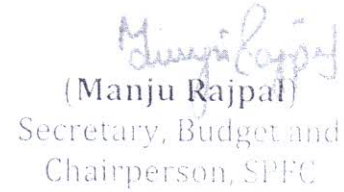 Manju Rajpal
(Manju Rajpal)
Secretary, Budget and
Chairperson, SPFC